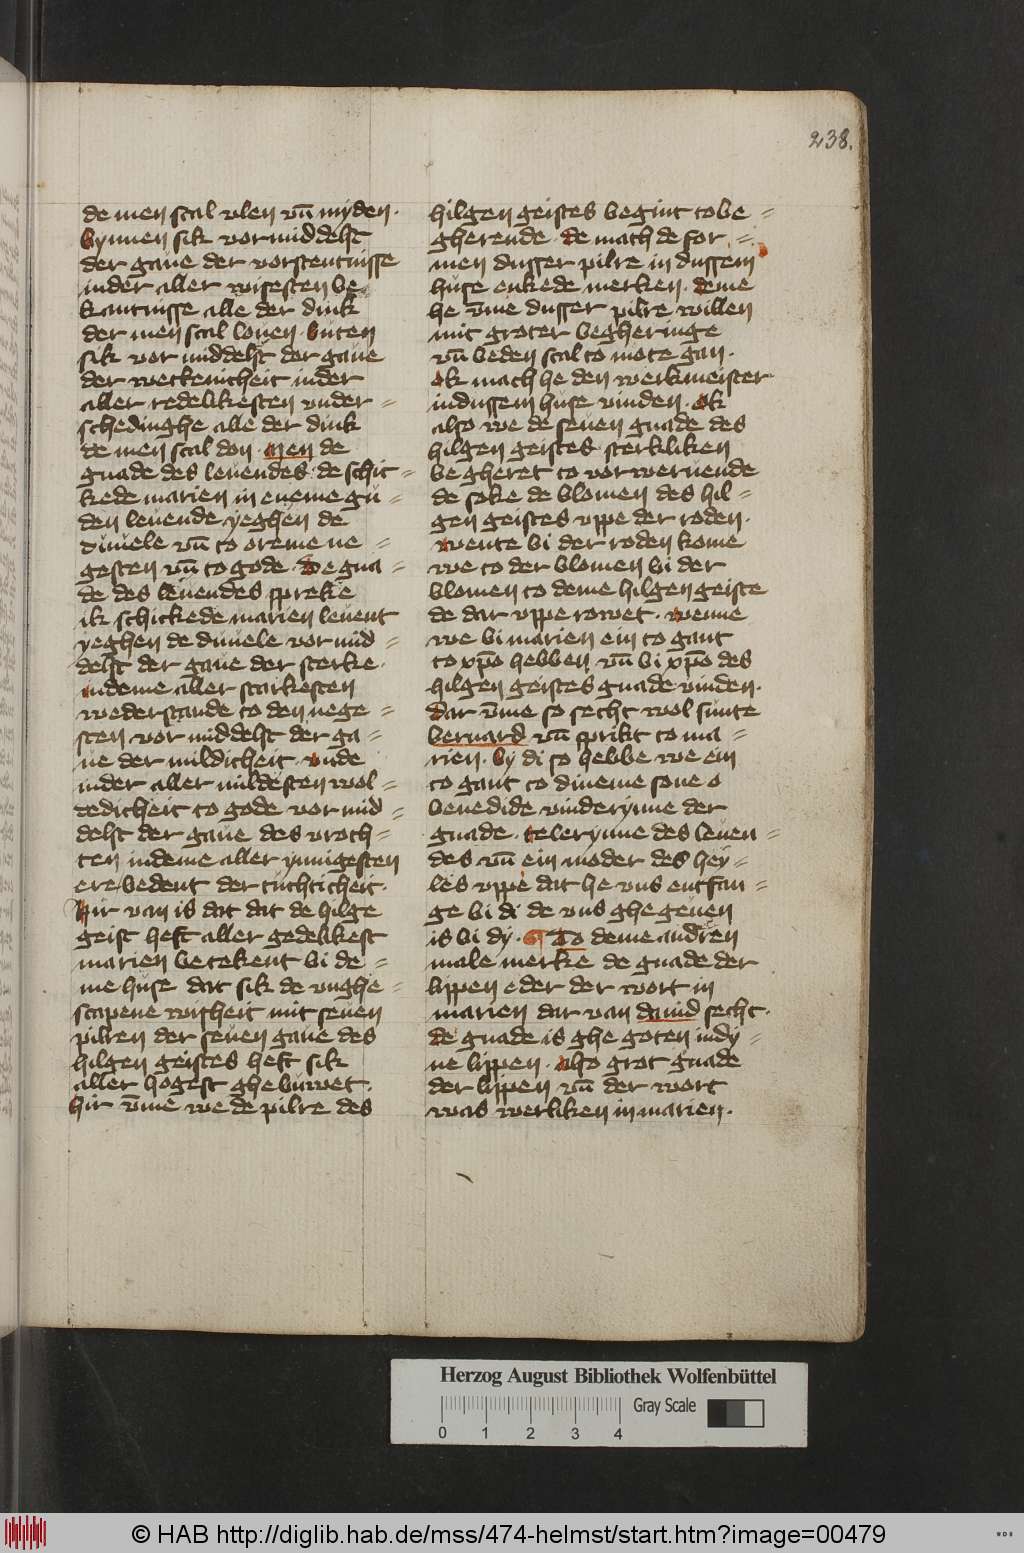 238.
de men scal vlen vn̄ myden.
bynnen sik vormiddelst
der gaue der vorstentnisse
in der aller wisesten be
kantnisse alle der dink
der men scal louen. buten
sik vor middelst der gaue
der wetkenicheit in der
aller redelikesten vnder=
schedinghe alle der dink
de men scal don. Men de
gnade des leuendes de schic=
kede marien in eneme gu=
den leuende yeghen de
duuele vn̄ to oreme ne=
gesten vn̄ to gode. De gna=
de des leuendes spreke
ik schickede marien leuent
yeghen de duuele vor mid=
delst der gaue der sterke.
in deme aller starkesten
wederstande to den nege=
sten vor middelst der ga=
ue der mildicheit. vnde
in der aller mildesten wol=
dedicheit to gode vor mid=
delst der gaue des vroch=
ten in deme aller ynnigesten
ere bedent der tuchticheit.
Hir van is dat dat de hilge
geist heft aller gedelikest
marien betekent bi de=
me huse dat sik de vnghe=
scapene wisheit mit seuen
pilren der seuen gaue des
hilgen geistes heft sik
aller hogest ghebuwet.
hir v̄me we de pilre des
hilgen geistes begint to be=
gherende. de mach de for=
men dusser pilre in dussem
huse enkede merken. deme
he v̄me dusser pilre willen
mit groter begheringe
vn̄ beden scal to mote gan.
ok mach he den werkmeister
in dussem huse vinden. ok
also we de seuen gnade des
hilgen geistes sterkliken
begheret to vorweruende
de soke de blomen des hil=
gen geistes vppe der roden.
wente bi der roden kome
we to der blomen bi der
blomen to deme hilgen geiste
de dar vppe rowet. wenne
we bi marien ein to gant
to xp̄o hebben vn̄ bi xp̄o des
hilgen geistes gnade vinden.
dar v̄me so secht wol sunte
bernard vn̄ sprikt to ma=
rien. by di so hebbe we ein
to gant to dineme sone o
benedide vinderynne der
gnade. telerynne des leuen=
des vn̄ ein moder des hey=
les vppe dat he vns entfan=
ge bi di de vns ghegeuen
is bi dy. ¶ To deme andren
male merke de gnade der
lippen eder der wort in
marien dar van dauid secht.
de gnade is ghegoten in dy=
ne lippen. also grot gnade
der lippen vn̄ der wort
was werliken in marien.
Herzog August Bibliothek Wolfenbüttel
Gray Scale
0 1 2 3 4
© HAB http://diglib.hab.de/mss/474-helmst/start.htm?image=00479